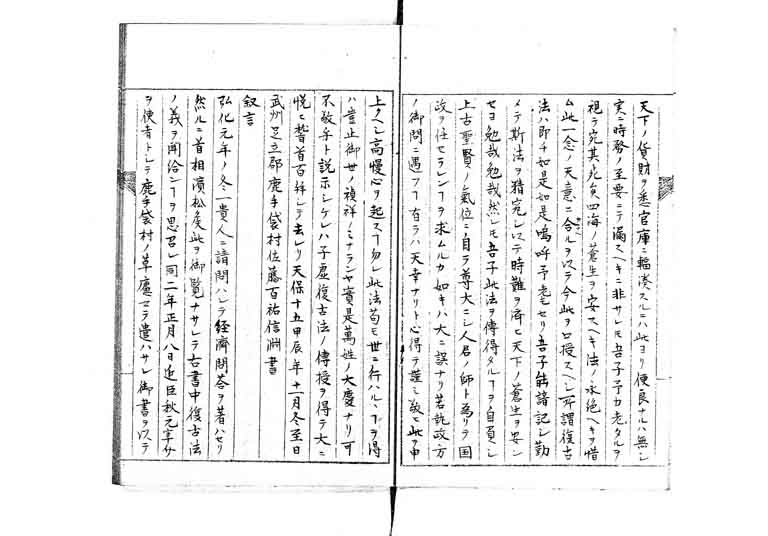 天下ノ貨財ヲ悉官庫ニ輻湊スルニハ此ヨリ便良ナルハ無シ
実ニ時務ノ至要ニテ漏スヘキニ非サレモ吾子予カ老タルヲ
視テ其死矣四海ノ蒼生ヲ安スヘキ法ノ永絶ヘキヲ惜
ム此一念ノ天意ニ合ルヲ以テ今此ヲ口授スヘシ所謂復古
法ハ即チ如是如是嗚呼予老セリ吾子能諳記シ勤
メテ斯法ヲ精究シ以テ時難ヲ済ヒ天下ノ蒼生ヲ安ン
セヨ勉哉勉哉然レモ吾子此法ヲ傳得タルヿヲ自負シ
上古聖賢ノ氣位ニ自ラ尊大ニシ人君ノ師ト為リテ国
政ヲ任セラレンヿヲ求ムルカ如キハ大ニ誤ナリ若執政方
ノ御問ニ遇フヿ有ラハ天幸ナリト心得テ謹ミ敬ヒ此ヲ申
上クヘシ高慢心ヲ起スヿ勿レ此法苟モ世ニ行ハルヽヿヲ得
ハ豈止御世ノ禎祥ノミナランヤ實是萬姓ノ大慶ナリ可
不敬乎ト説示シケレハ子虚復古法ノ傳授ヲ得テ大ニ
悦ヒ稽首百拜シテ去レリ天保十五甲辰年十一月冬至日
武州足立郡鹿手袋村佐藤百祐信淵書
叙言
弘化元年ノ冬一貴人ニ請問ハレテ経濟問答ヲ著ハセリ
然ルニ首相濱松矦此ヲ御覧ナサレテ右書中復古法
ノ義ヲ聞給ンヿヲ思召シ同二年正月八日近臣秋元宰
ヲ使者トシテ鹿手袋村ノ草廬マテ遣ハサレ御書ヲ以テ